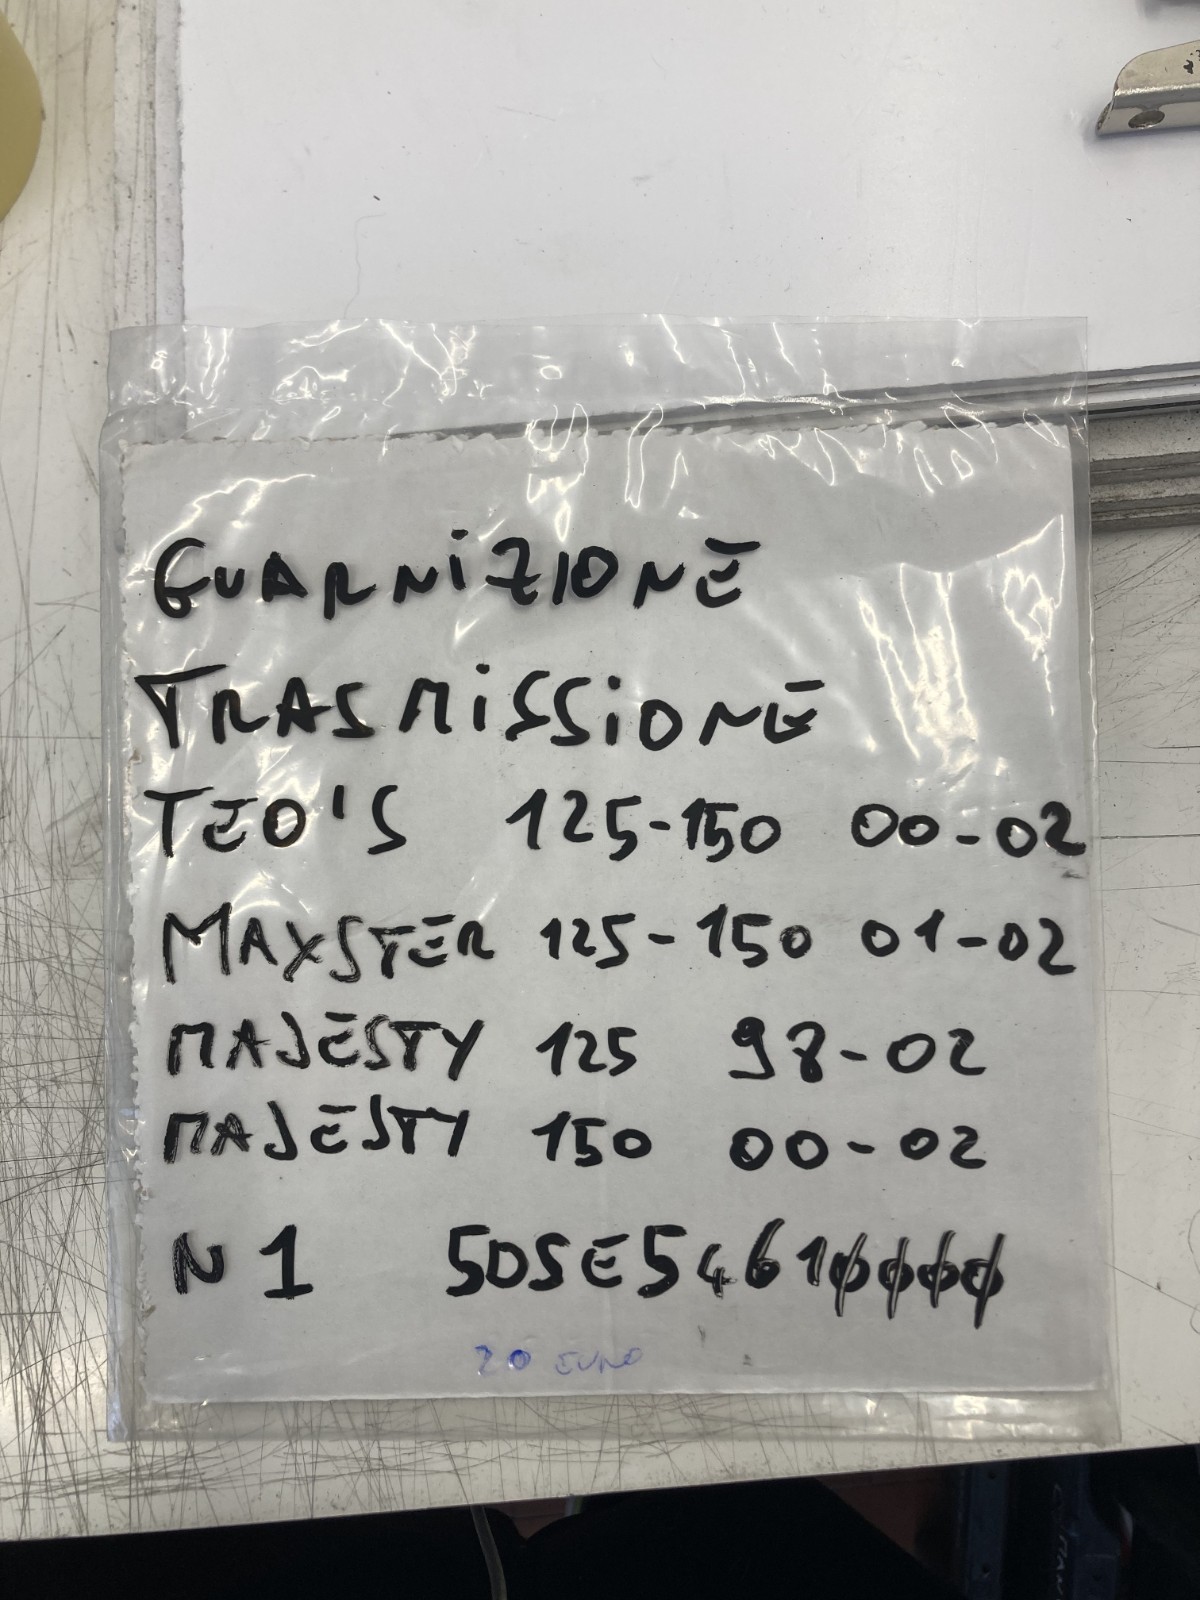 GUARNIZIONE
TRASMISSIONE
TEO'S 125-150 00-02
MAXSTER 125-150 01-02
MAJESTY 125 98-02
MAJESTY 150 00-02
N1 5DSE54610000
20 EURO